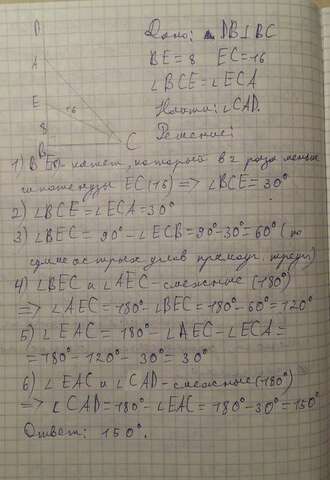 D
A
E
16
8
B
C
Дано: DB⊥BC
BE=8 EC=16
∠BCE=∠ECA
Найти: ∠CAD.
Решение:
1) BE - катет, который в 2 раза меньше
гипотенузы EC(16) => ∠BCE=30°
2) ∠BCE=∠ECA=30°
3) ∠BEC= 90°-∠ECB=90°-30°=60° (по
сумме острых углов прямоуг. треуг.)
4) ∠BEC и ∠AEC - смежные (180°)
=> ∠AEC=180°-∠BEC=180°-60°=120°
5) ∠EAC = 180°-∠AEC-∠ECA=
=180°-120°-30°=30°
6) ∠EAC и ∠CAD - смежные (180°)
=> ∠CAD=180°-∠EAC=180°-30°=150°
Ответ: 150°.